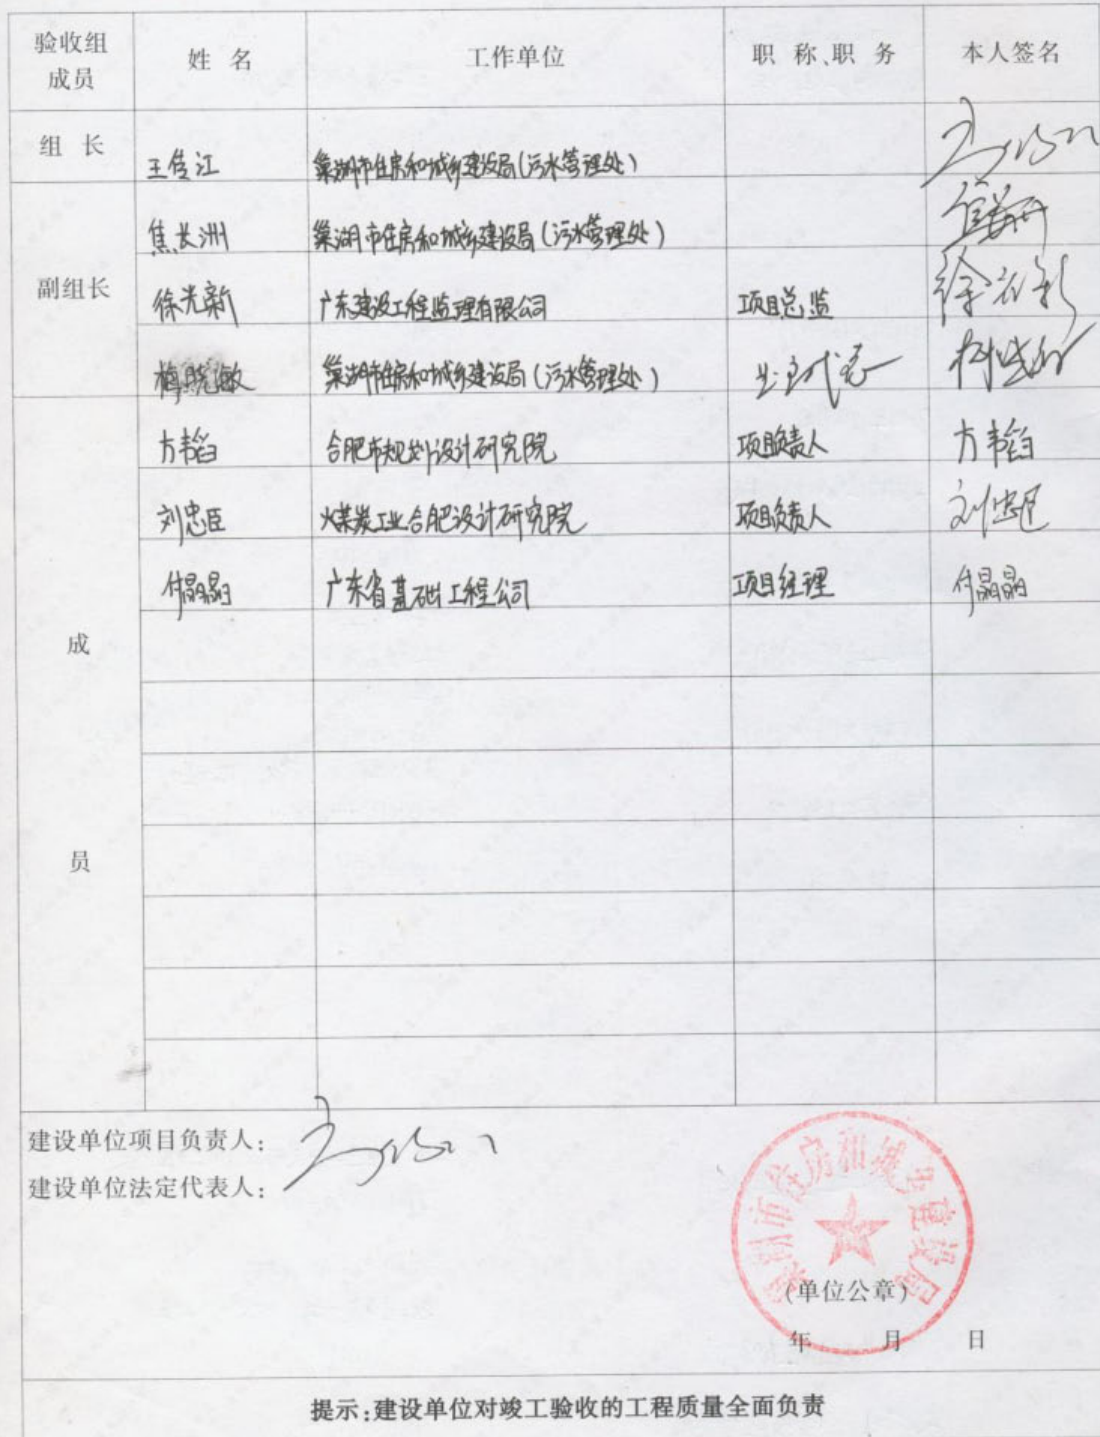 验收组成员 姓 名 工作单位 职 称、职 务 本人签名
组 长 王传江 巢湖市住房和城乡建设局(污水管理处)
副组长 焦长洲 巢湖市住房和城乡建设局(污水管理处)
徐光新 广东建设工程监理有限公司 项目总监
梅晓敏 巢湖市住房和城乡建设局(污水管理处) 业主代表
成员 方韬 合肥市规划设计研究院 项目负责人 方韬
刘忠臣 煤炭工业合肥设计研究院 项目负责人 刘忠臣
付晶晶 广东省基础工程公司 项目经理 付晶晶
建设单位项目负责人:
建设单位法定代表人:
巢湖市住房和城乡建设局
(单位公章)
年 月 日
提示:建设单位对竣工验收的工程质量全面负责